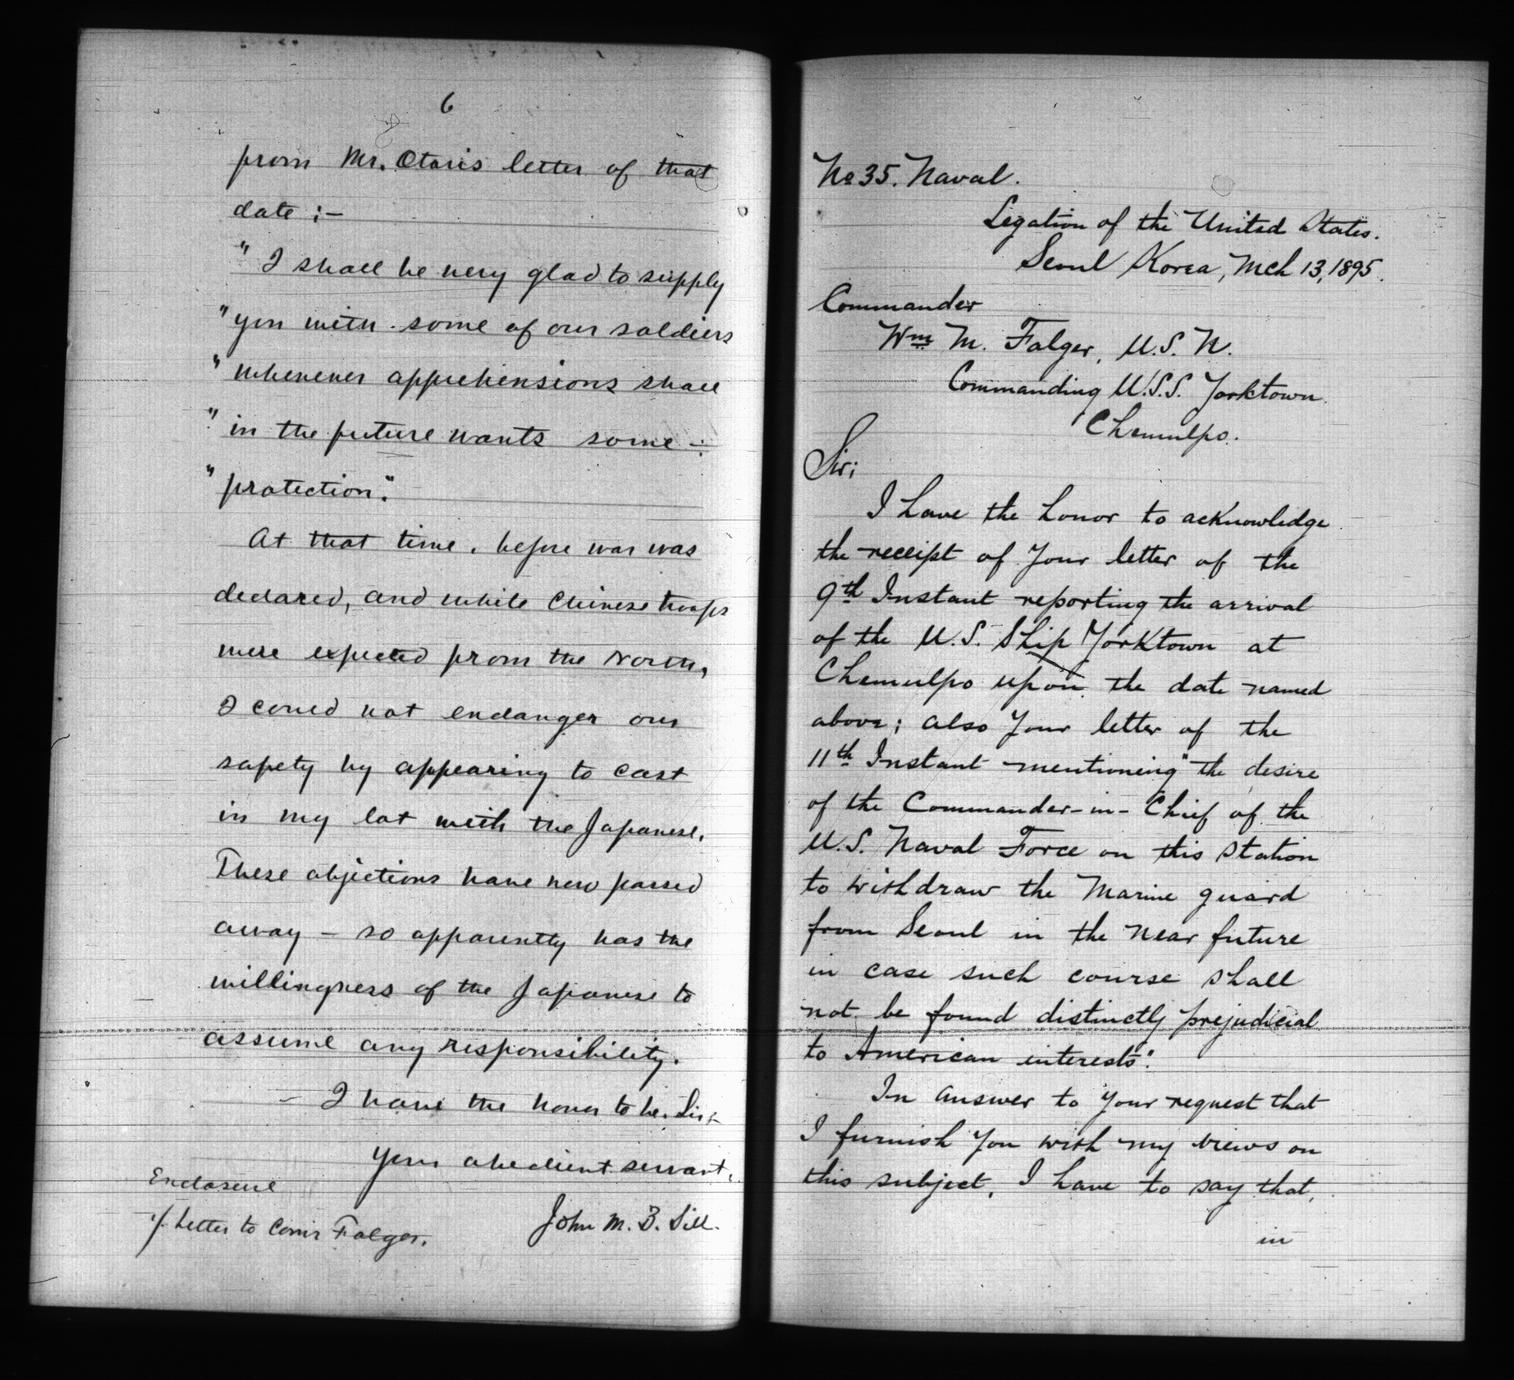 6
from Mr. Otoris letter of that
date :—
" I shall be very glad to supply
" you with some of our soldiers
" whenever apprehensions shall
" in the future wants some -
" protection".
At that time, before war was
declared, and while Chinese troops
were expected from the North,
I could not endanger our
safety by appearing to cast
in my lot with the Japanese.
These objections have now passed
away — so apparently has the
willingness of the Japanese to
assume any responsibility.
— I have the honor to be, Sir,
Your obedient servant,
Enclosure
John M. B. Sill.
1/ Letter to Com'r Folger.
No 35. Naval.
Legation of the United States.
Seoul Korea, Mch 13, 1895.
Commander
Wm M. Folger, U.S.N.
Commanding U.S.S. Yorktown.
Chemulpo.
Sir;
I have the honor to acknowledge
the receipt of your letter of the
9th Instant reporting the arrival
of the U.S. Ship Yorktown at
Chemulpo upon the date named
above; also your letter of the
11th Instant mentioning "the desire
of the Commander-in-Chief of the
U.S. Naval Force on this Station
to withdraw the Marine guard
from Seoul in the near future
in case such course shall
not be found distinctly prejudicial
to American interests".
In answer to your request that
I furnish you with my views on
this subject, I have to say that,
in